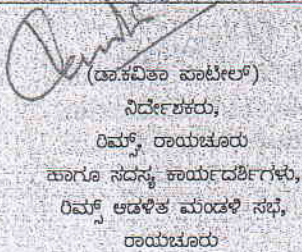 (ಡಾ.ಕವಿತಾ ಪಾಟೀಲ್)
ನಿರ್ದೇಶಕರು,
ರಿಮ್ಸ್, ರಾಯಚೂರು
ಹಾಗೂ ಸದಸ್ಯ ಕಾರ್ಯದರ್ಶಿಗಳು,
ರಿಮ್ಸ್ ಆಡಳಿತ ಮಂಡಳಿ ಸಭೆ,
ರಾಯಚೂರು